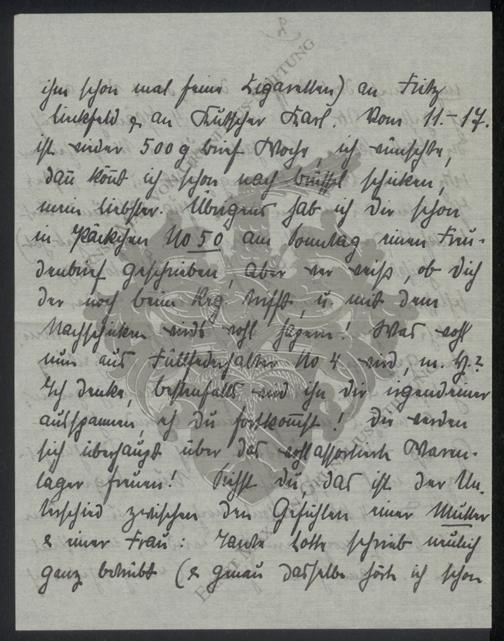 ihm schon mal feine Zigaretten) an Fritz
Linkfeld & an Deutscher Karl. Vom 11.-17.
ist wieder 500 g brief Woche, ich wünschte,
dann könnt ich schon nach schicken,
mein Liebster. Übrigens hab ich Dir schon
in Päckchen No 50 am Sonntag einen Freu-
denbrief geschrieben, aber wer weiß, ob Dich
der noch beim Rgt. trifft, u. mit dem
Nachschicken wirds wohl hapern! Was wohl
nun aus Füllfederhalter No 4 wird, m. H.?
Ich denke, bestenfalls wird ihn Dir irgendeiner
ausspannen, eh Du fortkommst! Die werden
sich überhaupt über das vollassortierte Waren-
lager freuen! Siehst Du, das ist der Un-
terschied zwischen den Gefühlen einer Mutter
& einer Frau: Tante Lotte schrieb neulich
ganz betrübt (& genau dasselbe hört ich schon